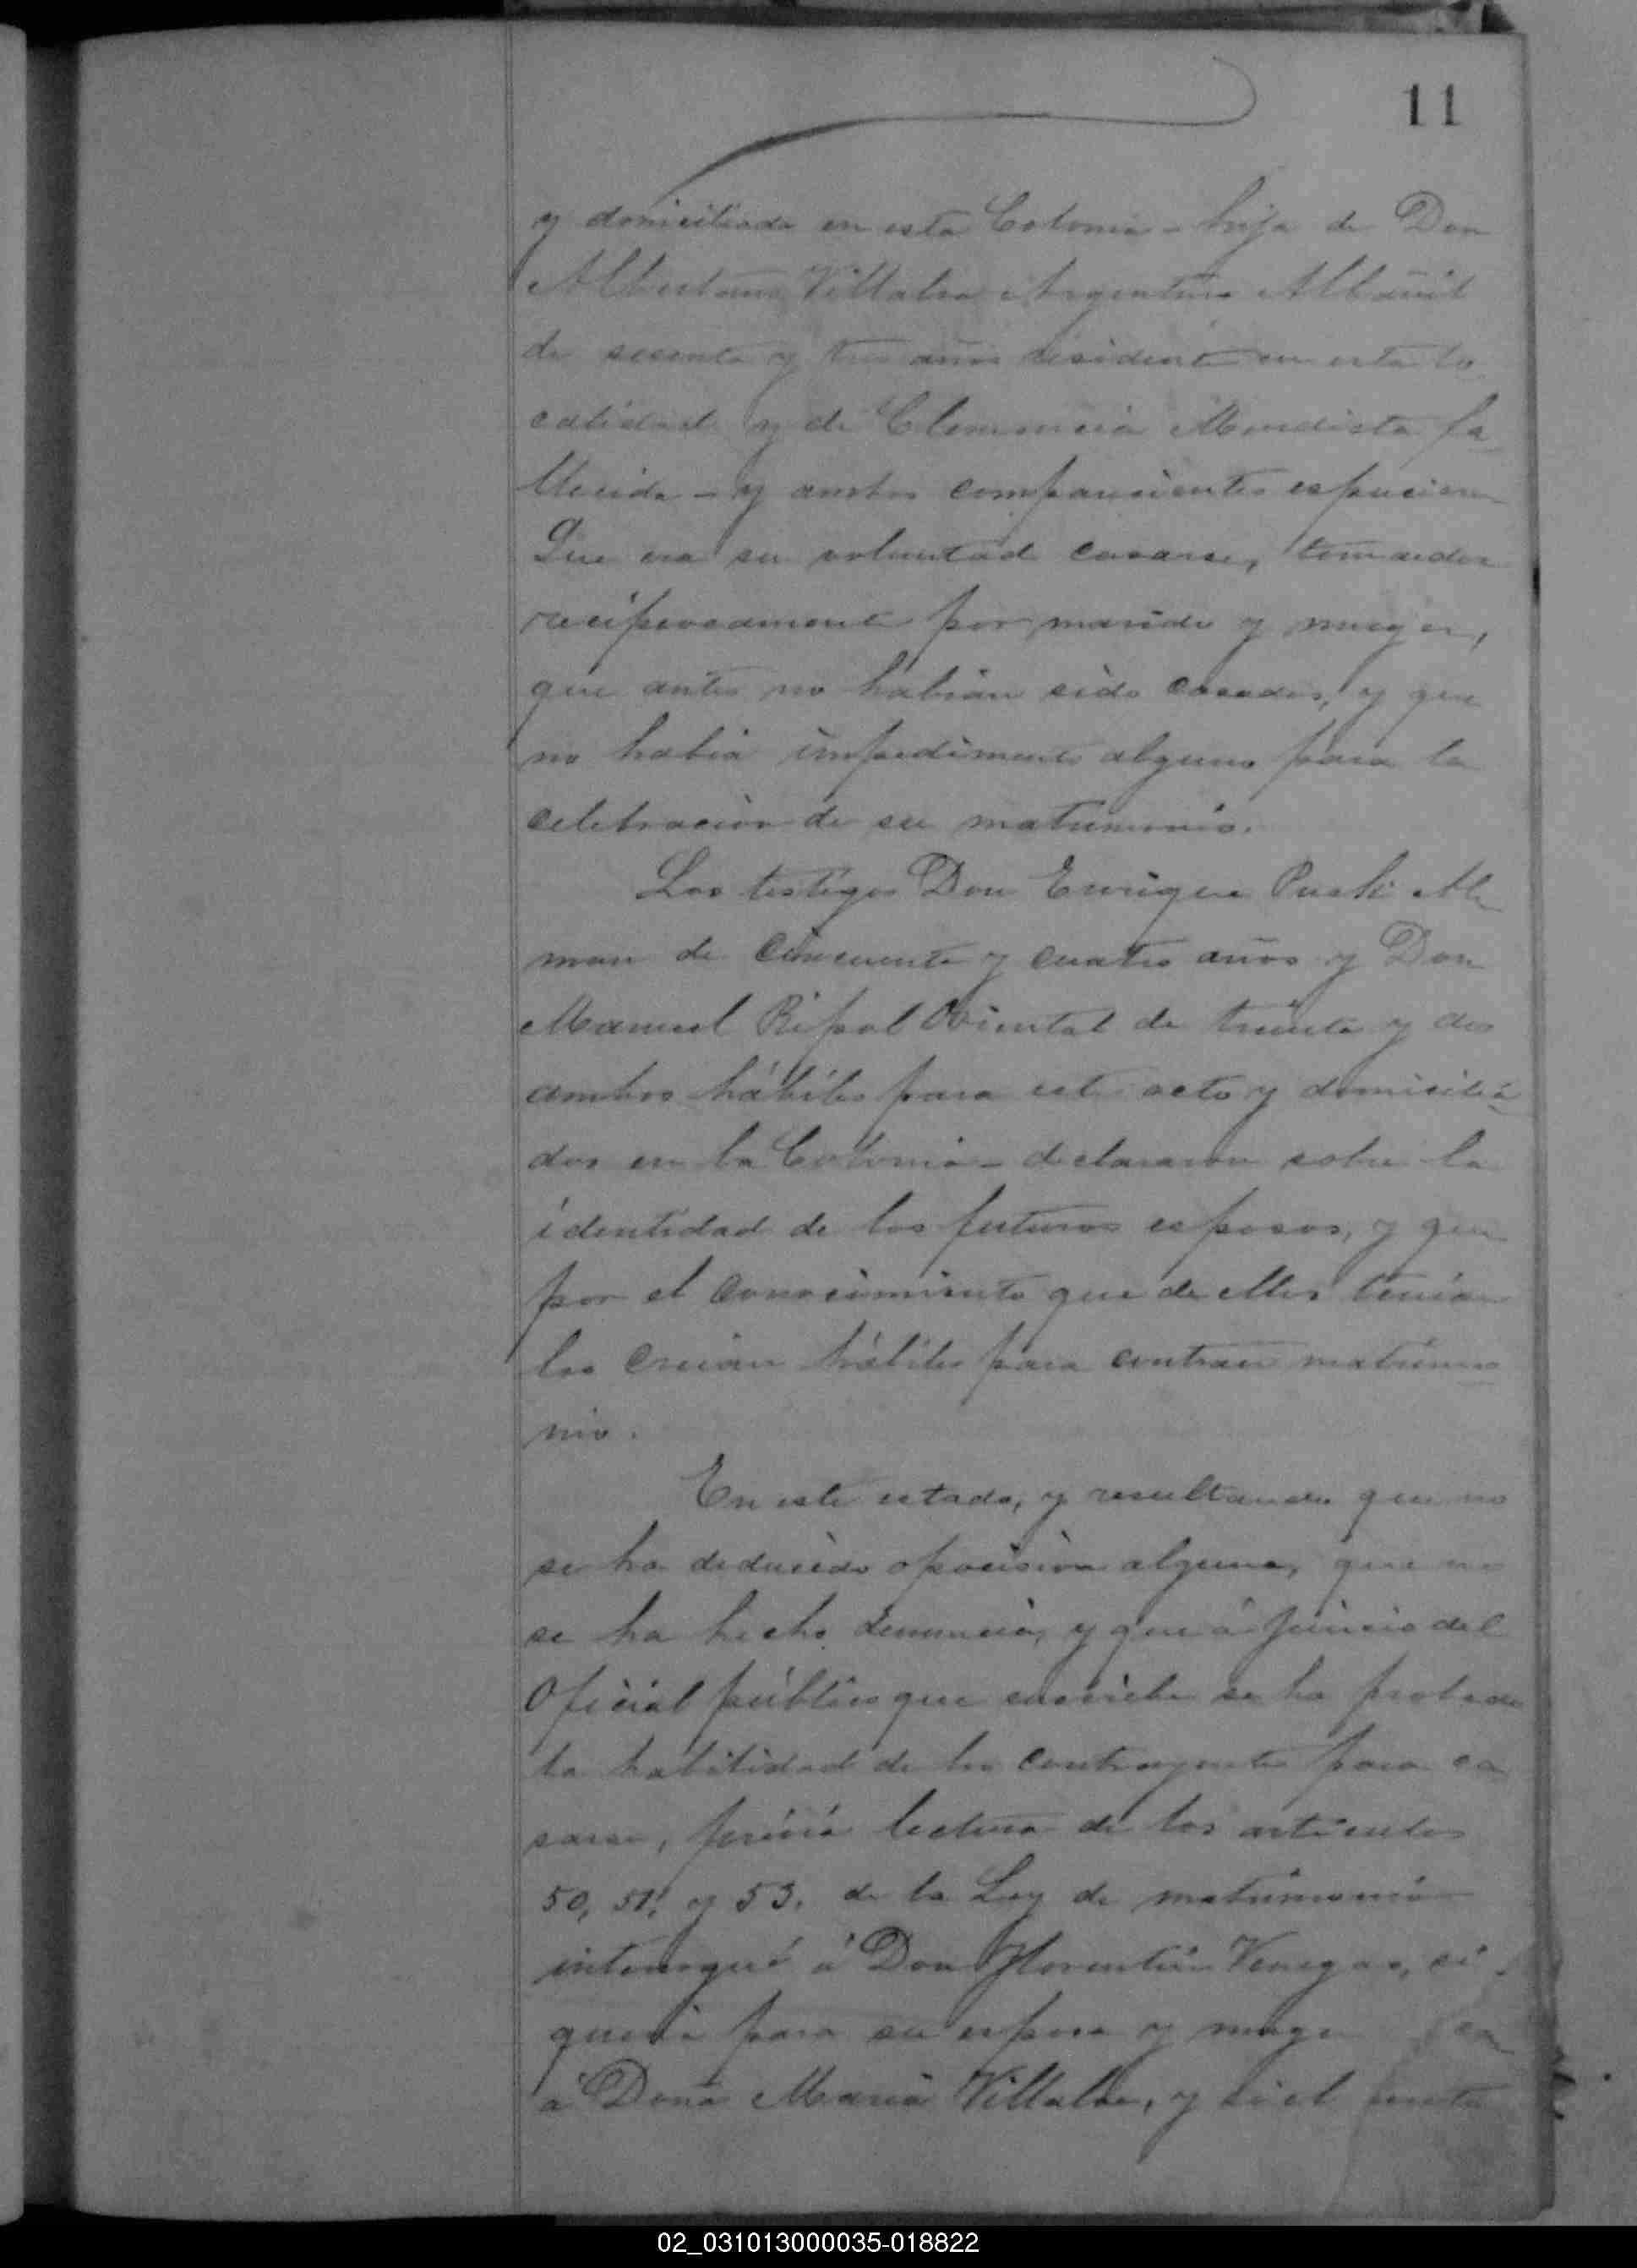 11
y domiciliada en esta Colonia - hija de Don
Albertano Villalba Argentino Albañil
de secenta y tres años residente en esta lo
calidad y de Clemencia Mendieta fa
llecida - y ambos comparecientes espucieron
Que era su voluntad casarse, tomandose
reciprocamente por marido y muger,
que antes no habian sido casados, y que
no habia impedimento alguno para la
celebracion de su matrimonio.
Los testigos Don Enrique Ale
man de cincuenta y cuatro años y Don
Manuel Ripol Oriental de treinta y dos
ambos hábiles para este acto y domicilia
dos en la Colonia - declararon sobre la
identidad de los futuros esposos, y que
por el conocimiento que de ellos tenian
los creian hábiles para contraer matrimo
nio.
En este estado, y resultando que no
se ha deducido oposicion alguna, que no
se ha hecho denuncia, y que á juicio del
Oficial público que suscribe se ha probado
la habilidad de los contrayentes para ca
sarse, prévia lectura de los articulos
50, 51, y 53. de la Ley de matrimonio
interrogué á Don Florentin Venegas, si
queria para su esposa y muge
á Doña Maria Villalba, y si el
02_031013000035-018822